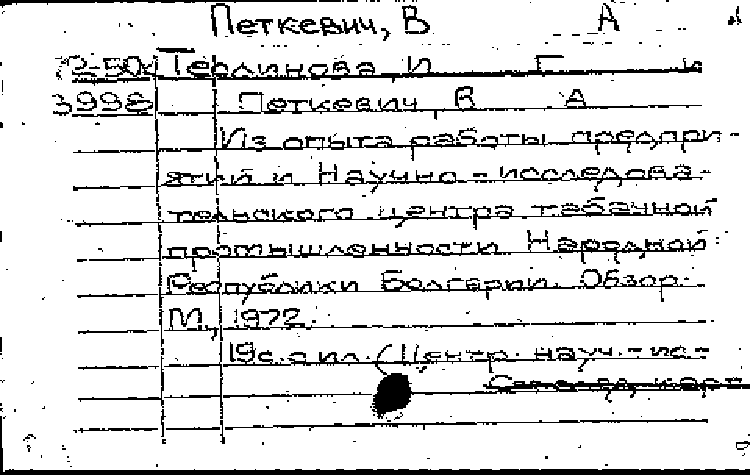 Петкевич, В А
72-50
3998 Терлинова И Г и
Петкевич, В А
Из опыта работы предпри-
ятий и Научно-исследова-
тельского центра табачной
промышленности Народной
Республики Болгарии. Обзор.
М., 1972.
19с. с ил. (Центр. науч.-ис-